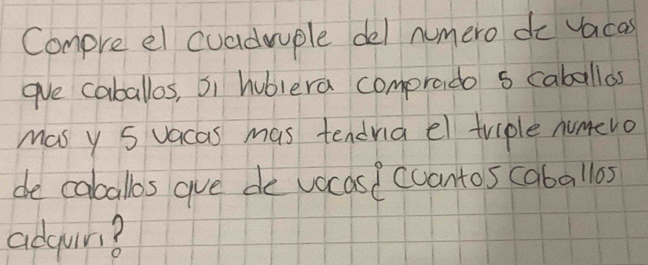 Compre el cuadruple del numero de vacas
que caballos, si hubiera comprado 5 caballos
mas y 5 vacas mas tendria el triple numero
de caballos que de vacas¿ cuantos caballos
adquiri?